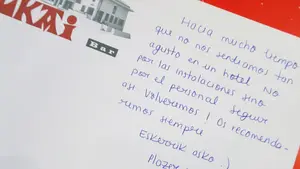 UKAi
Bar
Hacía mucho tiempo
que no nos sentíamos tan
agusto en un hotel. No
por las instalaciones sino
por el personal. Seguir
así. Volveremos! Os recomenda-
remos siempre
Eskerrik asko :)